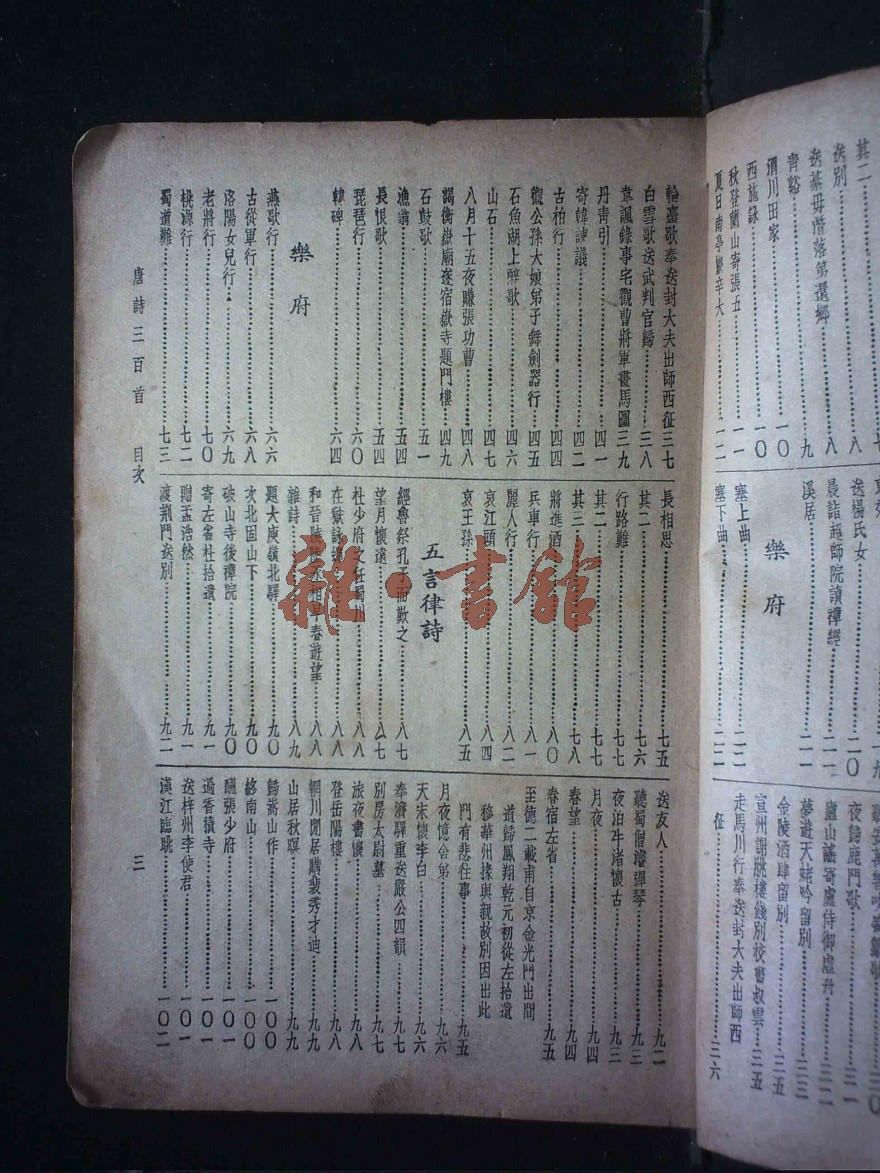 其二……八
送別……八
送綦毋潛落第還鄉……九
青谿……一〇
渭川田家……一〇
西施詠……一〇
秋登蘭山寄張五……一一
夏日南亭懷辛大……一二
送楊氏女……二〇
晨詣超師院讀禪經……二一
溪居……二一
樂府
塞上曲……二二
塞下曲……二二
夜歸鹿門歌……三一
廬山謠寄盧侍御虛舟……三二
夢遊天姥吟留別……三三
金陵酒肆留別……三五
宣州謝朓樓餞別校書叔雲……三五
走馬川行奉送封大夫出師西
征……三六
輪臺歌奉送封大夫出師西征三七
白雪歌送武判官歸……三八
韋諷錄事宅觀曹將軍畫馬圖三九
丹青引……四一
寄韓諫議……四二
古柏行……四四
觀公孫大娘弟子舞劍器行……四五
石魚湖上醉歌……四六
山石……四七
八月十五夜贈張功曹……四八
謁衡嶽廟遂宿嶽寺題門樓……四九
石鼓歌……五一
漁翁……五四
長恨歌……五四
琵琶行……六〇
韓碑……六四
樂府
燕歌行……六六
古從軍行……六八
洛陽女兒行……六九
老將行……七〇
桃源行……七二
蜀道難……七三
長相思……七五
其二……七六
行路難……七七
其二……七七
其三……七八
將進酒……八〇
兵車行……八一
麗人行……八二
哀江頭……八四
哀王孫……八五
五言律詩
經魯祭孔子而歎之……八七
望月懷遠……八七
杜少府之任蜀州……八八
在獄詠蟬……八八
和晉陵陸丞相早春遊望……八八
雜詩……八九
題大庾嶺北驛……九〇
次北固山下……九〇
破山寺後禪院……九〇
寄左省杜拾遺……九一
贈孟浩然……九一
渡荊門送別……九二
送友人……九二
聽蜀僧濬彈琴……九三
夜泊牛渚懷古……九三
月夜……九四
春望……九四
春宿左省……九五
至德二載甫自京金光門出間
道歸鳳翔乾元初從左拾遺
移華州掾與親故別因出此
門有悲往事……九五
月夜憶舍弟……九六
天末懷李白……九六
奉濟驛重送嚴公四韻……九七
別房太尉墓……九七
旅夜書懷……九八
登岳陽樓……九八
輞川閒居贈裴秀才迪……九九
山居秋暝……九九
歸嵩山作……一〇〇
終南山……一〇〇
酬張少府……一〇一
過香積寺……一〇一
送梓州李使君……一〇一
漢江臨眺……一〇二
唐詩三百首 目次
三
雜·書館